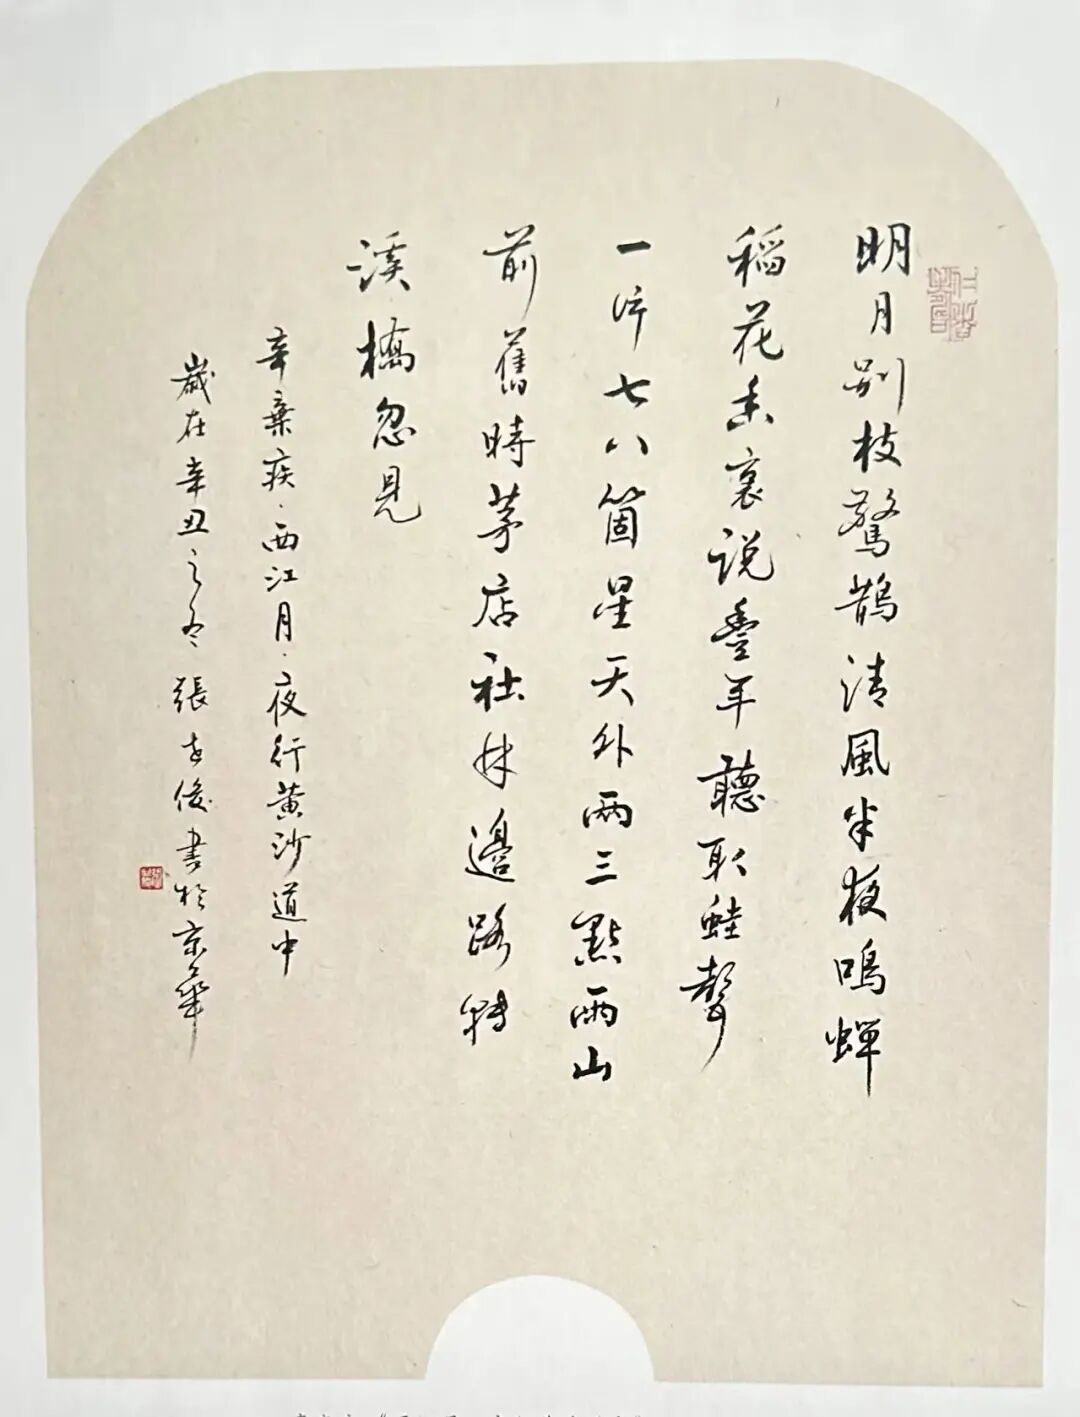 明月别枝驚鵲清風半夜鳴蟬
稻花香裏説豐年聽取蛙聲
一片七八箇星天外兩三點雨山
前舊時茅店社林邊路轉
溪橋忽見
辛棄疾·西江月·夜行黄沙道中
歲在辛丑之冬張俊書於京華